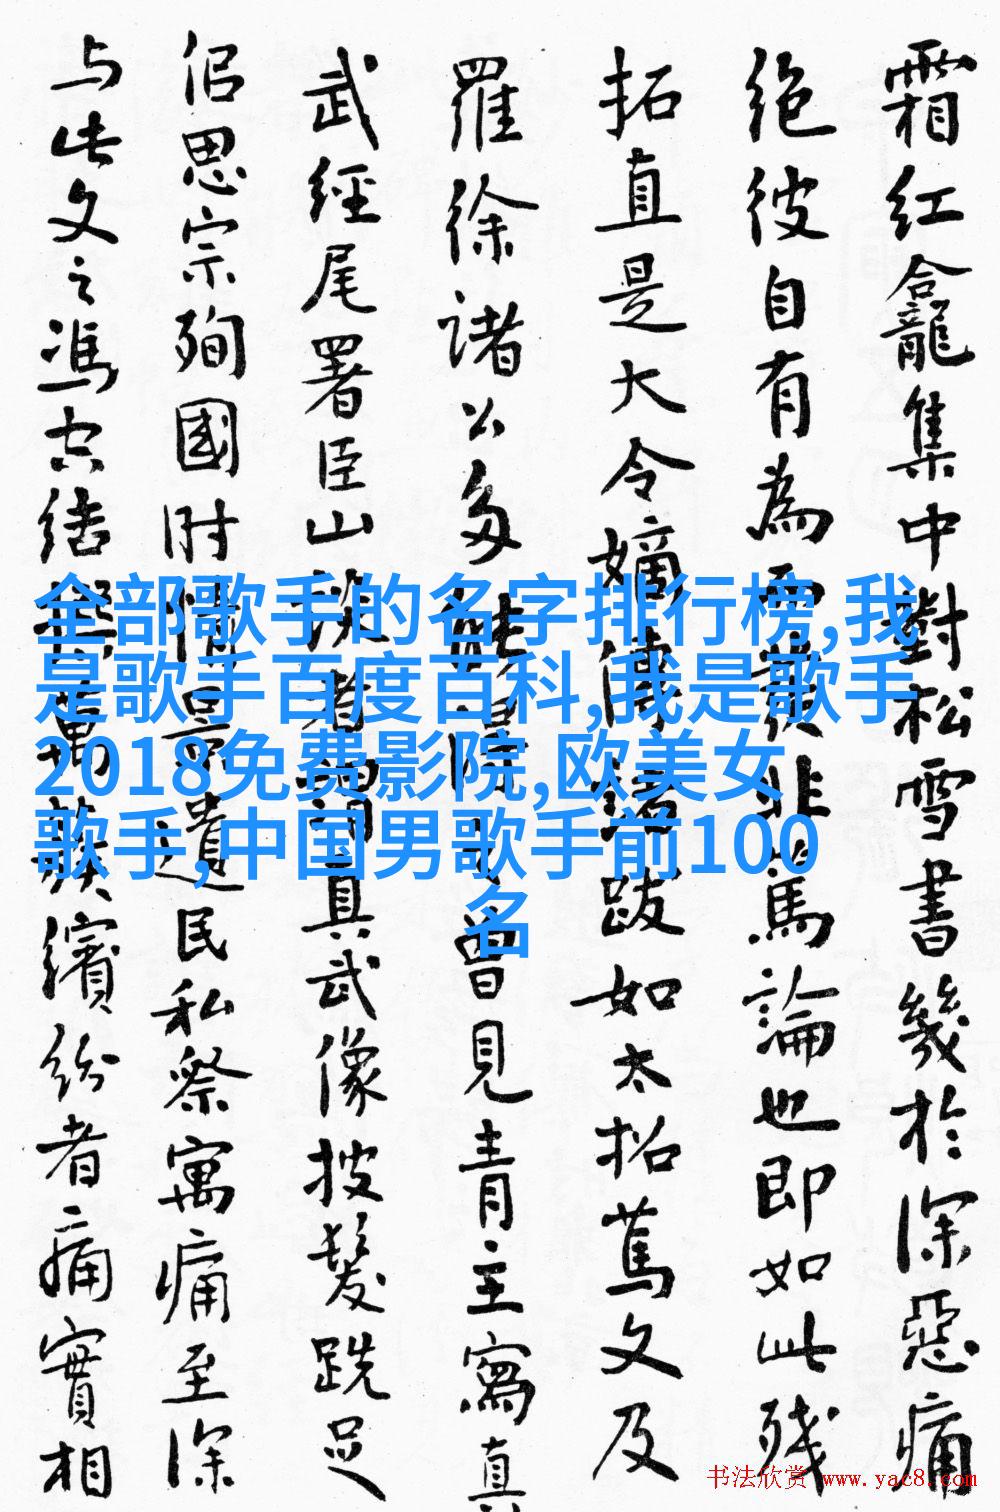 霜红龛集中對松雪書幾於深惡痛
绝彼自有為而發非篤論也即如此残
拓直是大令嫡傳 跋如太招篤文及
羅徐諸公多能 曾見青主寫真
武經尾署臣山 真武像披髮跣足
侣思宗殉國时情景遺民私察寓痛至深
与此文之馮 结 萬 族繽纷者痛實相
全部歌手的名字排行榜,我
是歌手百度百科,我是歌手
2018免费影院,欧美女
歌手,中国男歌手前100
名
书法欣赏 www.yac8.com